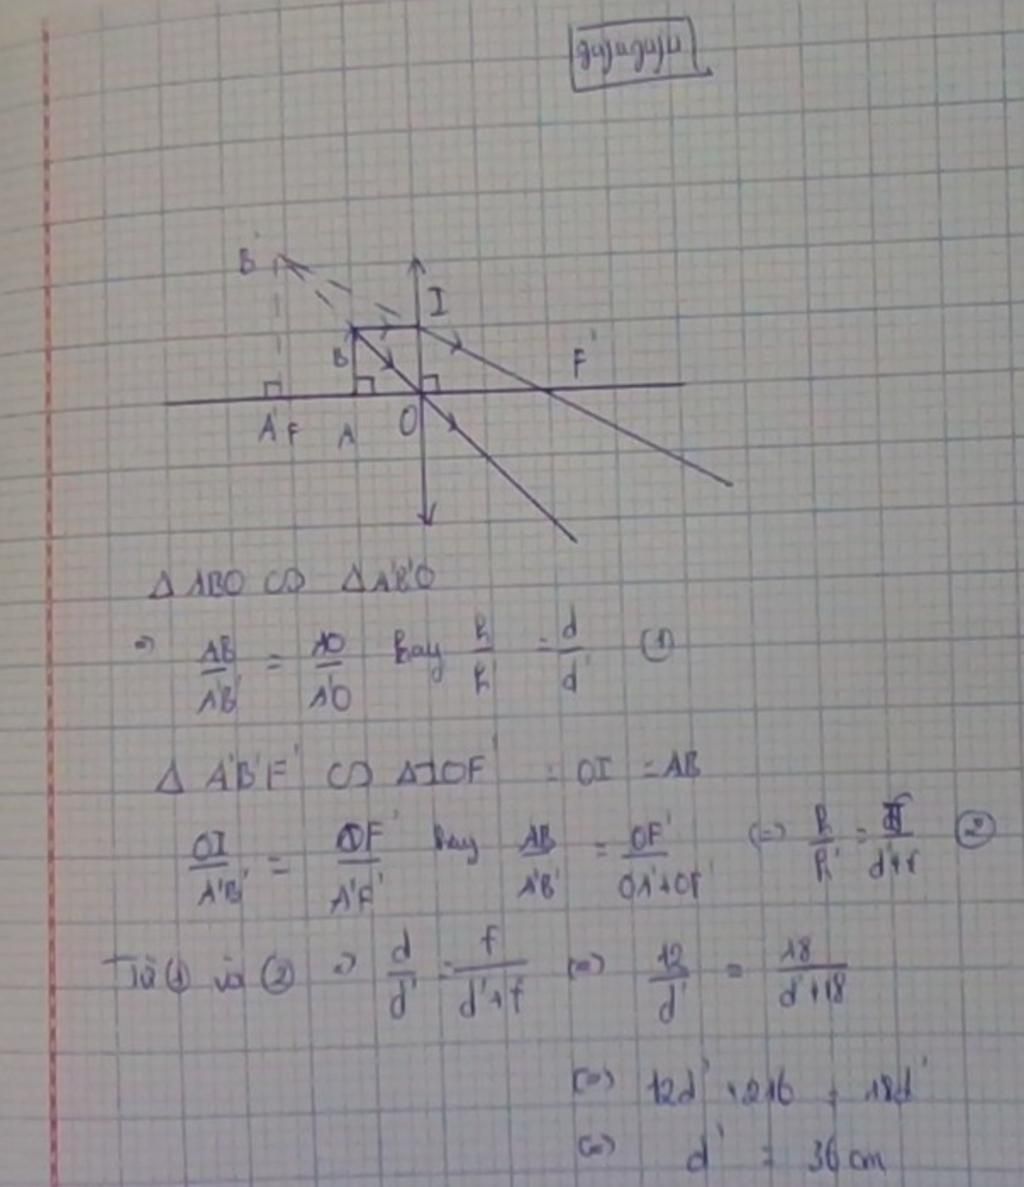 gujuguju
B'
I
B
F'
A' F A O
Δ ABO ∽ Δ A'B'O
=> AB/A'B' = AO/A'O hay h/h' = d/d' (1)
Δ A'B'F' ∽ Δ IOF' = OI = AB
OI/A'B' = OF'/A'F' hay AB/A'B' = OF'/OA'+OF' <=> h/h' = f/d'+f (2)
Từ (1) và (2) => d/d' = f/d'+f <=> 12/d' = 18/d'+18
<=> 12d' + 216 = 18d'
<=> d' = 36 cm